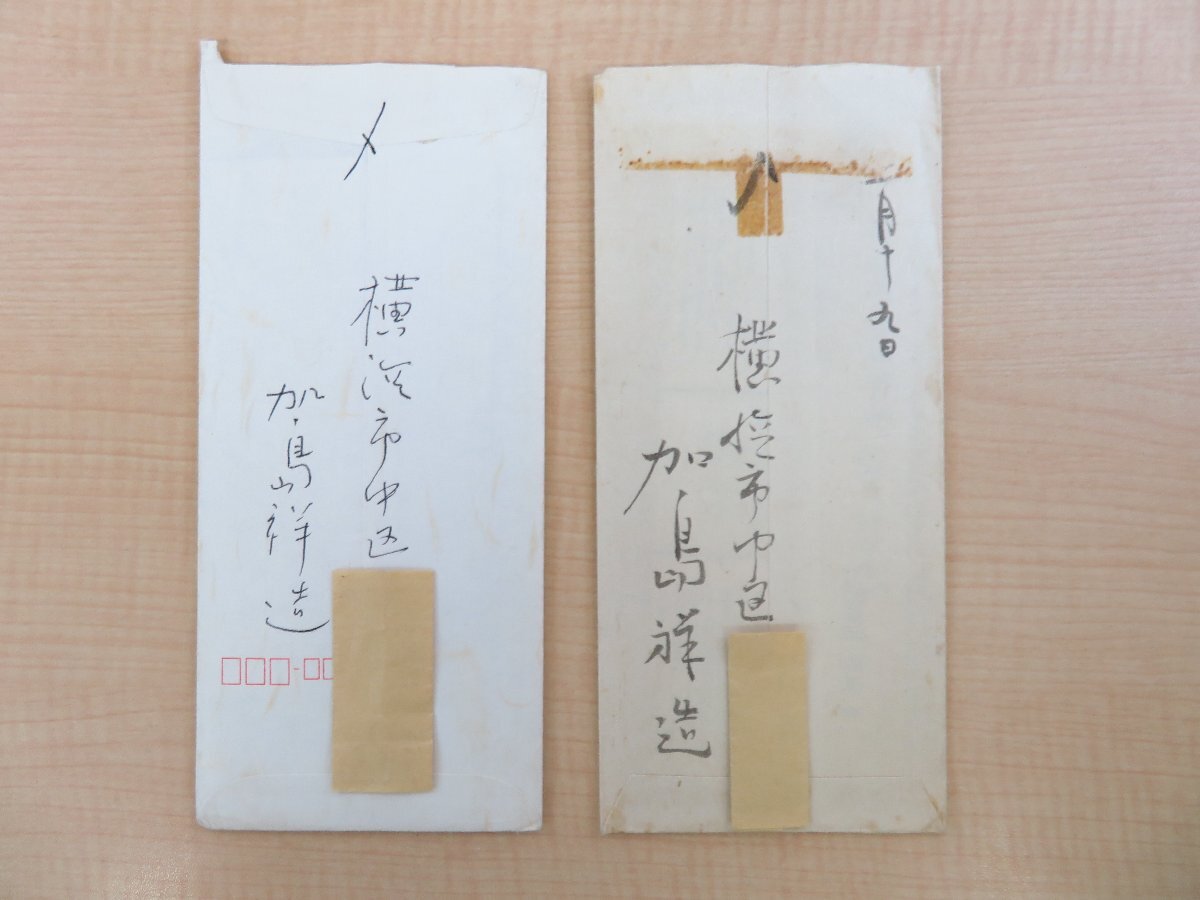 〆
横浜市中区
加島祥造
〆
月十九日
横浜市中区
加島祥造